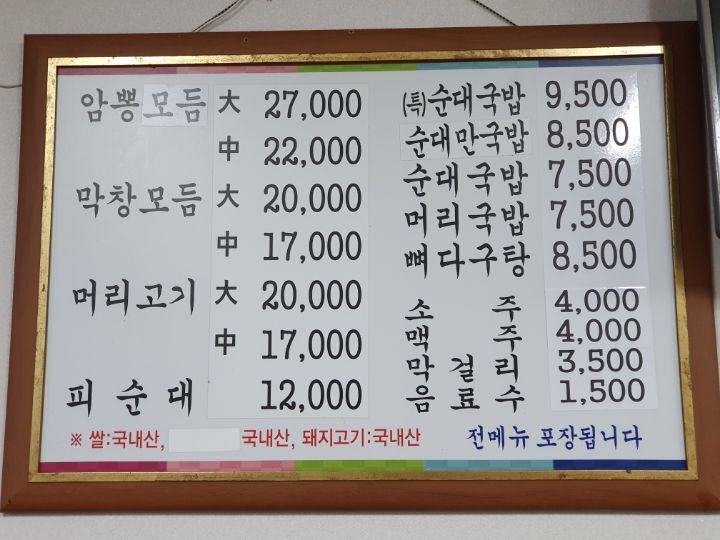 암뽕모듬 大 27,000
中 22,000
막창모듬 大 20,000
中 17,000
머리고기 大 20,000
中 17,000
피순대 12,000
(특)순대국밥 9,500
순대만국밥 8,500
순대국밥 7,500
머리국밥 7,500
뼈다구탕 8,500
소주 4,000
맥주 4,000
막걸리 3,500
음료수 1,500
※ 쌀:국내산, 국내산, 돼지고기:국내산
전메뉴 포장됩니다